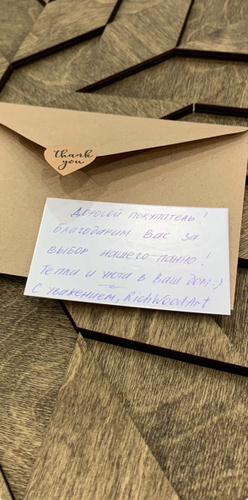 thank
you
Дорогой покупатель!
Благодарим Вас за
выбор нашего панно!
Тепла и уюта в Ваш дом:)
С уважением, RichWoodArt